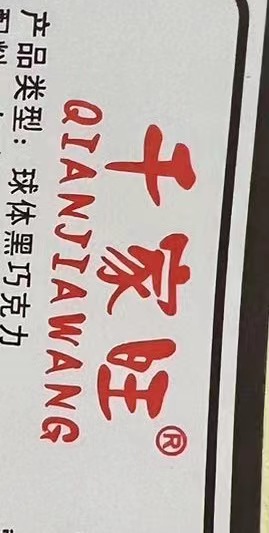 千家旺®
QIANJIAWANG
产品类型：球体黑巧克力